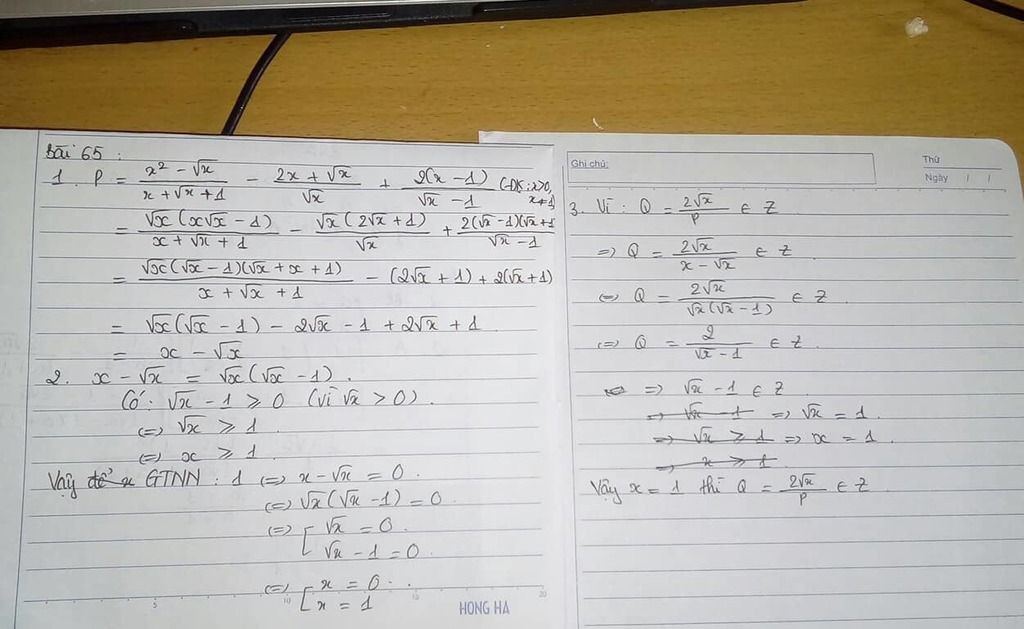 Bài 65 :
1. P = \frac{x² - √x}{x + √x + 1} - \frac{2x + √x}{√x} + \frac{2(x - 1)}{√x - 1} (ĐK: x>0, x≠1)
= \frac{√x(x√x - 1)}{x + √x + 1} - \frac{√x(2√x + 1)}{√x} + \frac{2(√x - 1)(√x + 1}{√x - 1}
= \frac{√x(√x - 1)(√x + x + 1)}{x + √x + 1} - (2√x + 1) + 2(√x + 1)
= √x(√x - 1) - 2√x - 1 + 2√x + 1
= x - √x
2. x - √x = √x(√x - 1).
Có: √x - 1 ⩾ 0 (vì √x > 0).
(=) √x ⩾ 1
(=) x ⩾ 1
Vậy để x GTNN : 1 (=) x - √x = 0
(=) √x(√x - 1) = 0
(=) [ √x = 0
√x - 1 = 0
(=) [ x = 0
x = 1
HONG HA
5 10 15 20
Ghi chú:
Thứ
Ngày / /
3. Vì : Q = \frac{2√x}{P} ∈ Z
=> Q = \frac{2√x}{x - √x} ∈ Z
(=) Q = \frac{2√x}{√x(√x - 1)} ∈ Z
(=) Q = \frac{2}{√x - 1} ∈ Z
=> √x - 1 ∈ Z
=> √x - 1 => √x = 1
=> √x ⩾ 1 => x = 1
=> x ⩾ 1
Vậy x = 1 thì Q = \frac{2√x}{P} ∈ Z